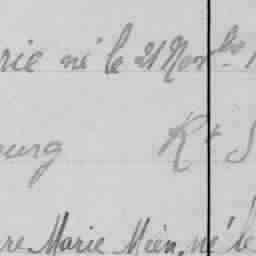 rie né le 21 Novbre
ourg R + S
re Marie Mien, né le